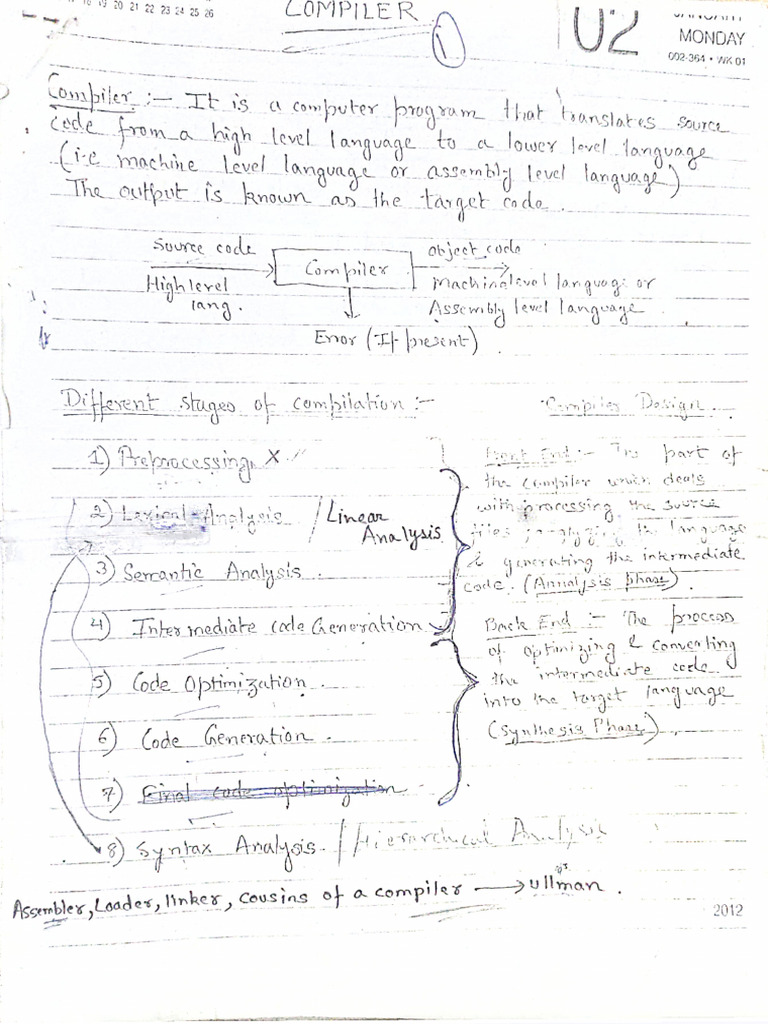 18 19 20 21 22 23 24 25 26
COMPILER
1
02
JANUARY
MONDAY
002-364 • WK 01
Compiler :- It is a computer program that translates source
code from a high level language to a lower level language
(i.e machine level language or assembly level language)
The output is known as the target code.
Source code
High level
lang.
Compiler
object code
Machine level language or
Assembly level language
Error (If present)
Different stages of compilation :-
Compiler Design.
1) Preprocessing X
2) Lexical Analysis / Linear
Analysis
3) Semantic Analysis.
4) Intermediate code Generation
5) Code Optimization.
6) Code Generation.
7) Final code optimization
8) Syntax Analysis. / Hierarchical Analysis
Front End :- The part of
the compiler which deals
with processing the source
files, the language
& generating the intermediate
code. (Annalysis phase).
Back End :- The process
of optimizing & converting
the intermediate code
into the target language
(Synthesis Phase).
Assembler, Loader, linker, cousins of a compiler → ullman.
2012